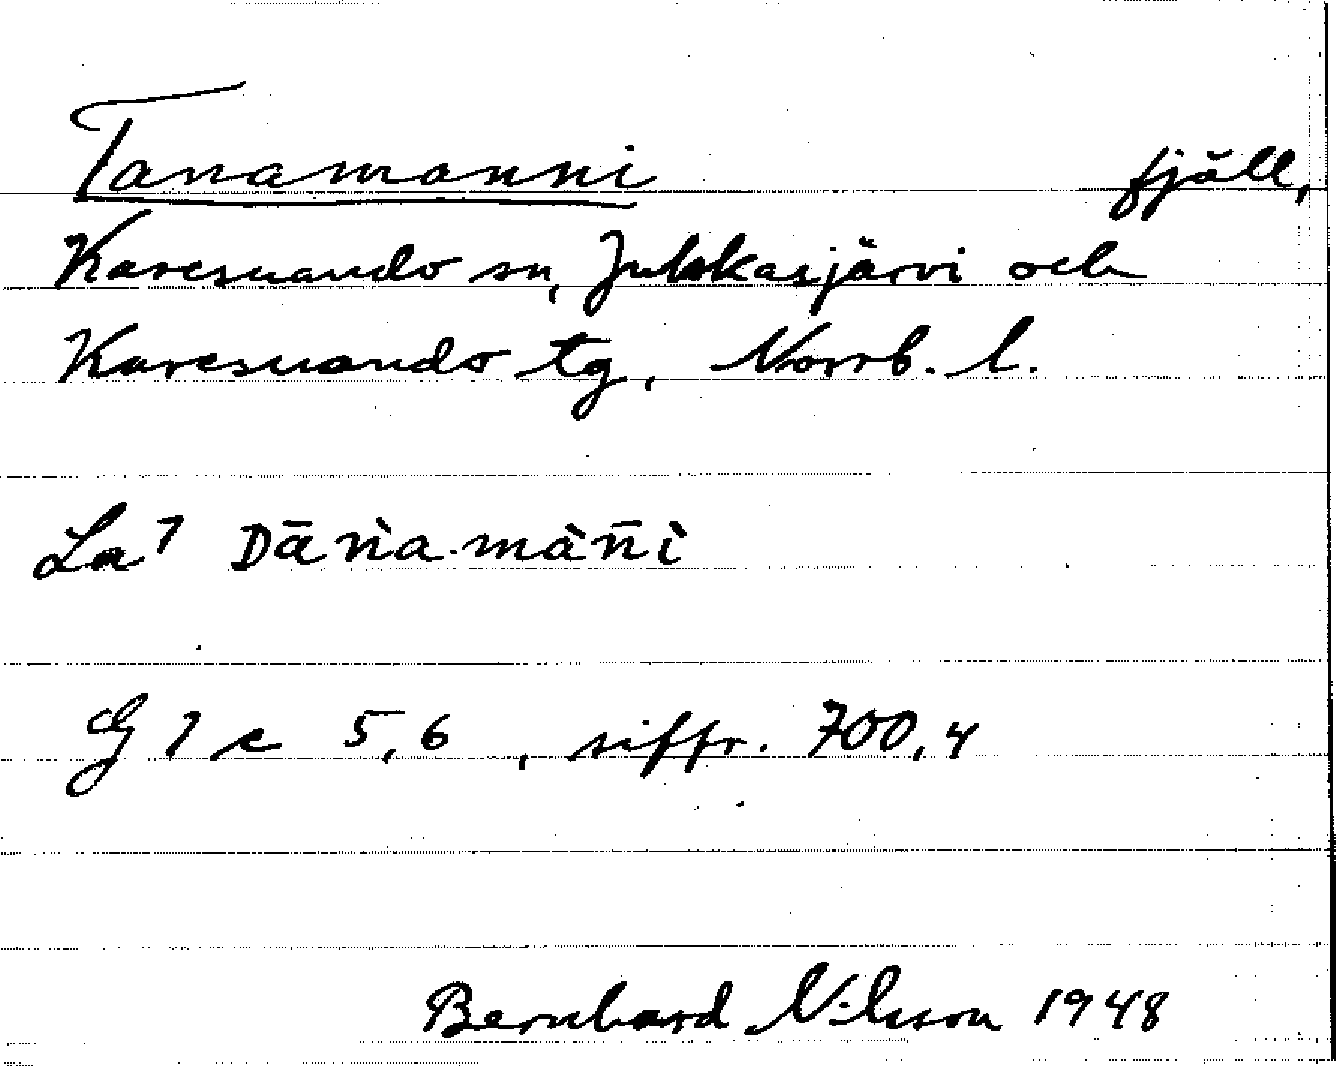 Tanamanni fjäll,
Karesuando sn, Jukkasjärvi och
Karesuando tg, Norrb. l.
La 7 Dānà·màn̄ì
G 7 c 5,6, siffr. 700,4
Bernhard Nilsson 1948